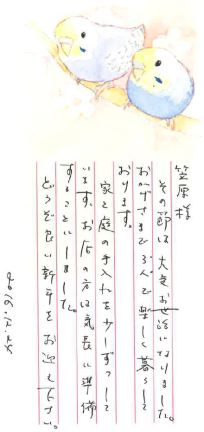 笠原様
その節は大変お世話になりました。
おかげさまで3人で楽しく暮らして
おります。
家と庭の手入れを少しずつして
います。お店の方は気長に準備
することにしました。
どうぞ良い新年をお迎え下さい。
2016.12.24